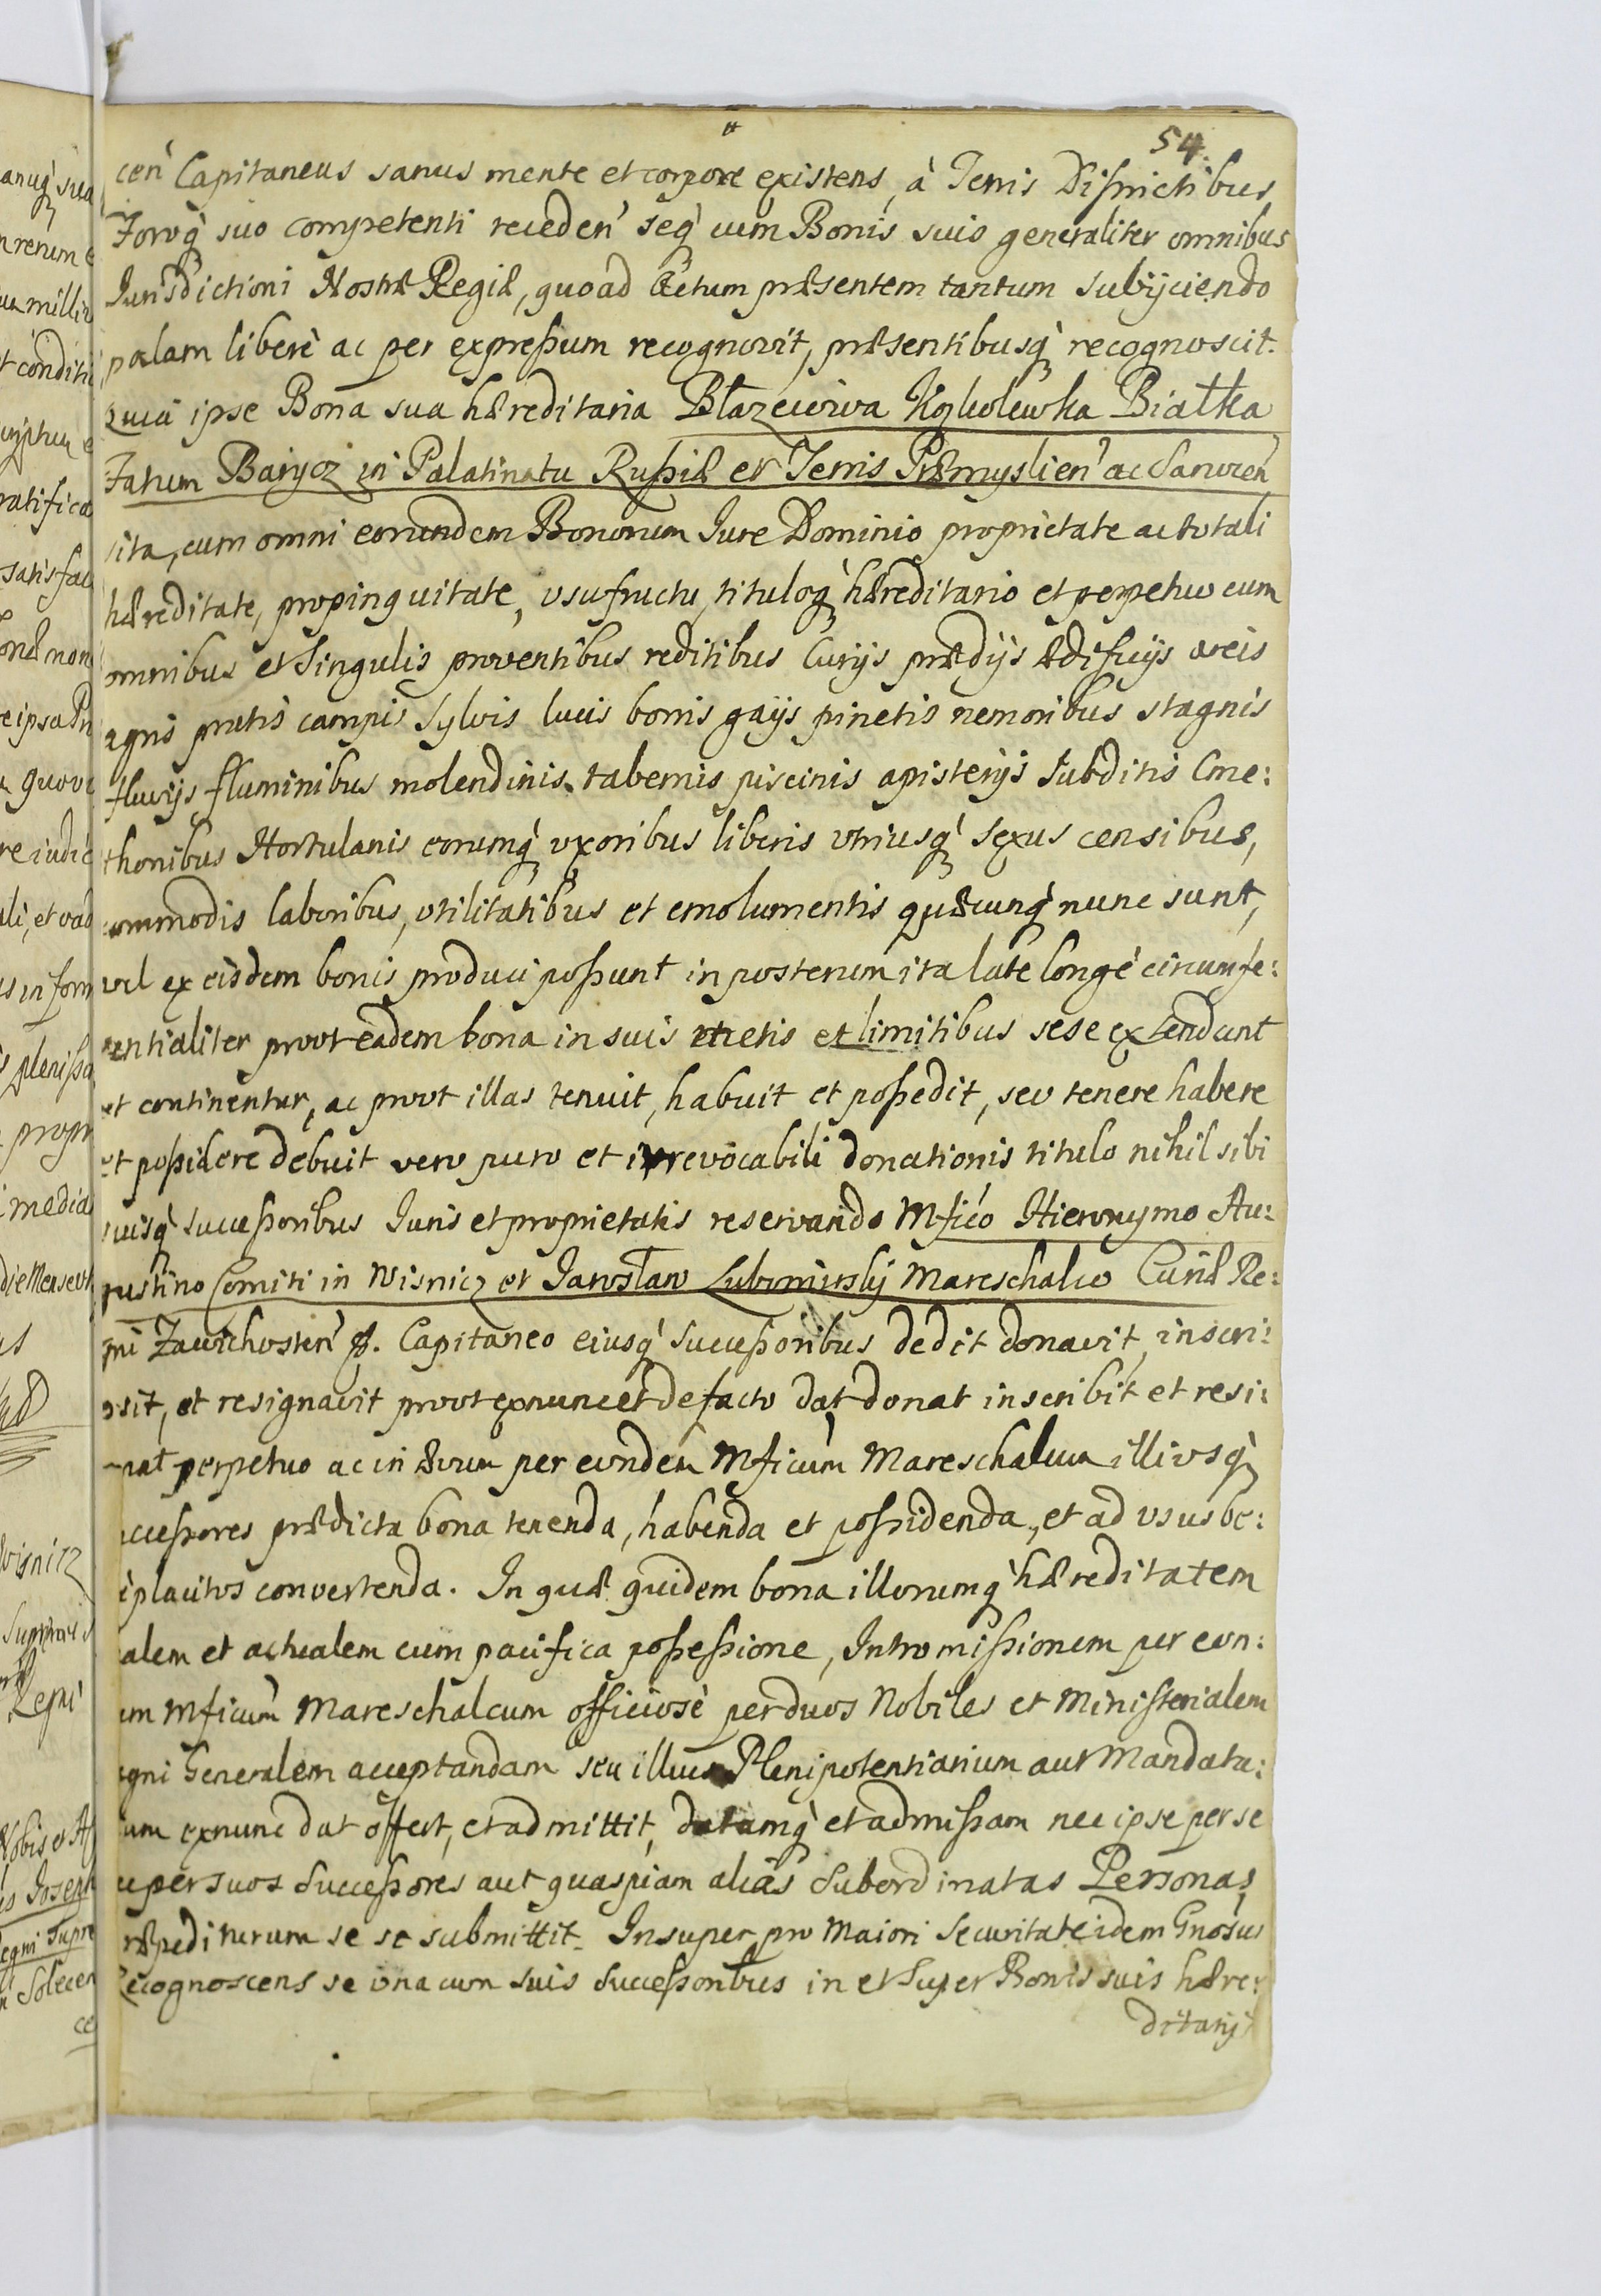 54.
cen̄ Capitaneus sanus mente et corpore existens, à Terris Districtibus
Foroq̀ suo competenti receden̄ seq̀ cum Bonis suis generaliter omnibus
Jurisdictioni Nostræ Regiæ, quoad Actum præsentem tantum subijciendo
palam liberè ac per expreßum recognovit, præsentibusq̀ recognoscit.
Quia ipse Bona sua hæreditaria Błazeiowa Białka
Fatum Barycz in Palatinatu Rußiæ et Terris Præmyslien̄ ac Sanocen̄
sita, cum omni eorundem Bonorum Jure Dominio proprietate ac totali
hæreditate, propinquitate, usufructu, tituloq̀ hæreditario et perpetuo cum
omnibus et singulis proventibus reditibus Curijs prædijs ædificijs areis
agris pratis campis Sylvis lucis borris gaijs pinetis nemoribus stagnis
fluvijs fluminibus molendinis tabernis piscinis apisterijs Subditis Cme:
thonibus Hortulanis eorumq̀ uxoribus liberis utriusq̀ sexus censibus,
commodis laboribus, utilitatibus et emolumentis quæcunq̀ nunc sunt,
vel ex eisdem bonis produci poßunt in posterum ita late longè circumfe:
rentialiter prout eadem bona in suis metis et limitibus sese extendunt
et continentur, ac prout illas tenuit, habuit et poßedit, seu tenere habere
et poßidere debuit vero puro et irrevocabili donationis titulo nihil sibi
suisq̀ succeßoribus Juris et proprietatis reservando Mfico Hieronymo Au:
gustino Comiti in Wisnicz et Jarosław Lubomirskij Mareschalco Curiæ Re:
gni Zawichosten̄ &. Capitaneo eiusq̀ succeßoribus dedit donavit, inscri:
psit, et resignavit prout exnunc et de facto dat donat inscribit et resi:
gnat perpetuo ac in ævum per eundem Mficum Mareschalcum illiusq̀
succeßores prædicta bona tenenda, habenda et poßidenda, et ad usus be:
neplacitos convertenda. In quæ quidem bona illorumq̀ hæreditatem
alem et actualem cum pacifica poßeßione, Intromißionem per eun:
um Mficum Mareschalcum officiosè per duos Nobiles et Ministerialem
egni Generalem acceptandam seu illius Plenipotentiarium aut Mandata:
um exnunc dat offert, et admittit, datamq̀ et admißam nec ipse per se
ec per suos Succeßores aut quaspiam alias Subordinatas Personas
ræpediturum se se submittit. Insuper pro Maiori Securitate idem Gnosus
Recognoscens se una cum suis Succeßoribus in et Super Bonis suis hære:
ditarijs